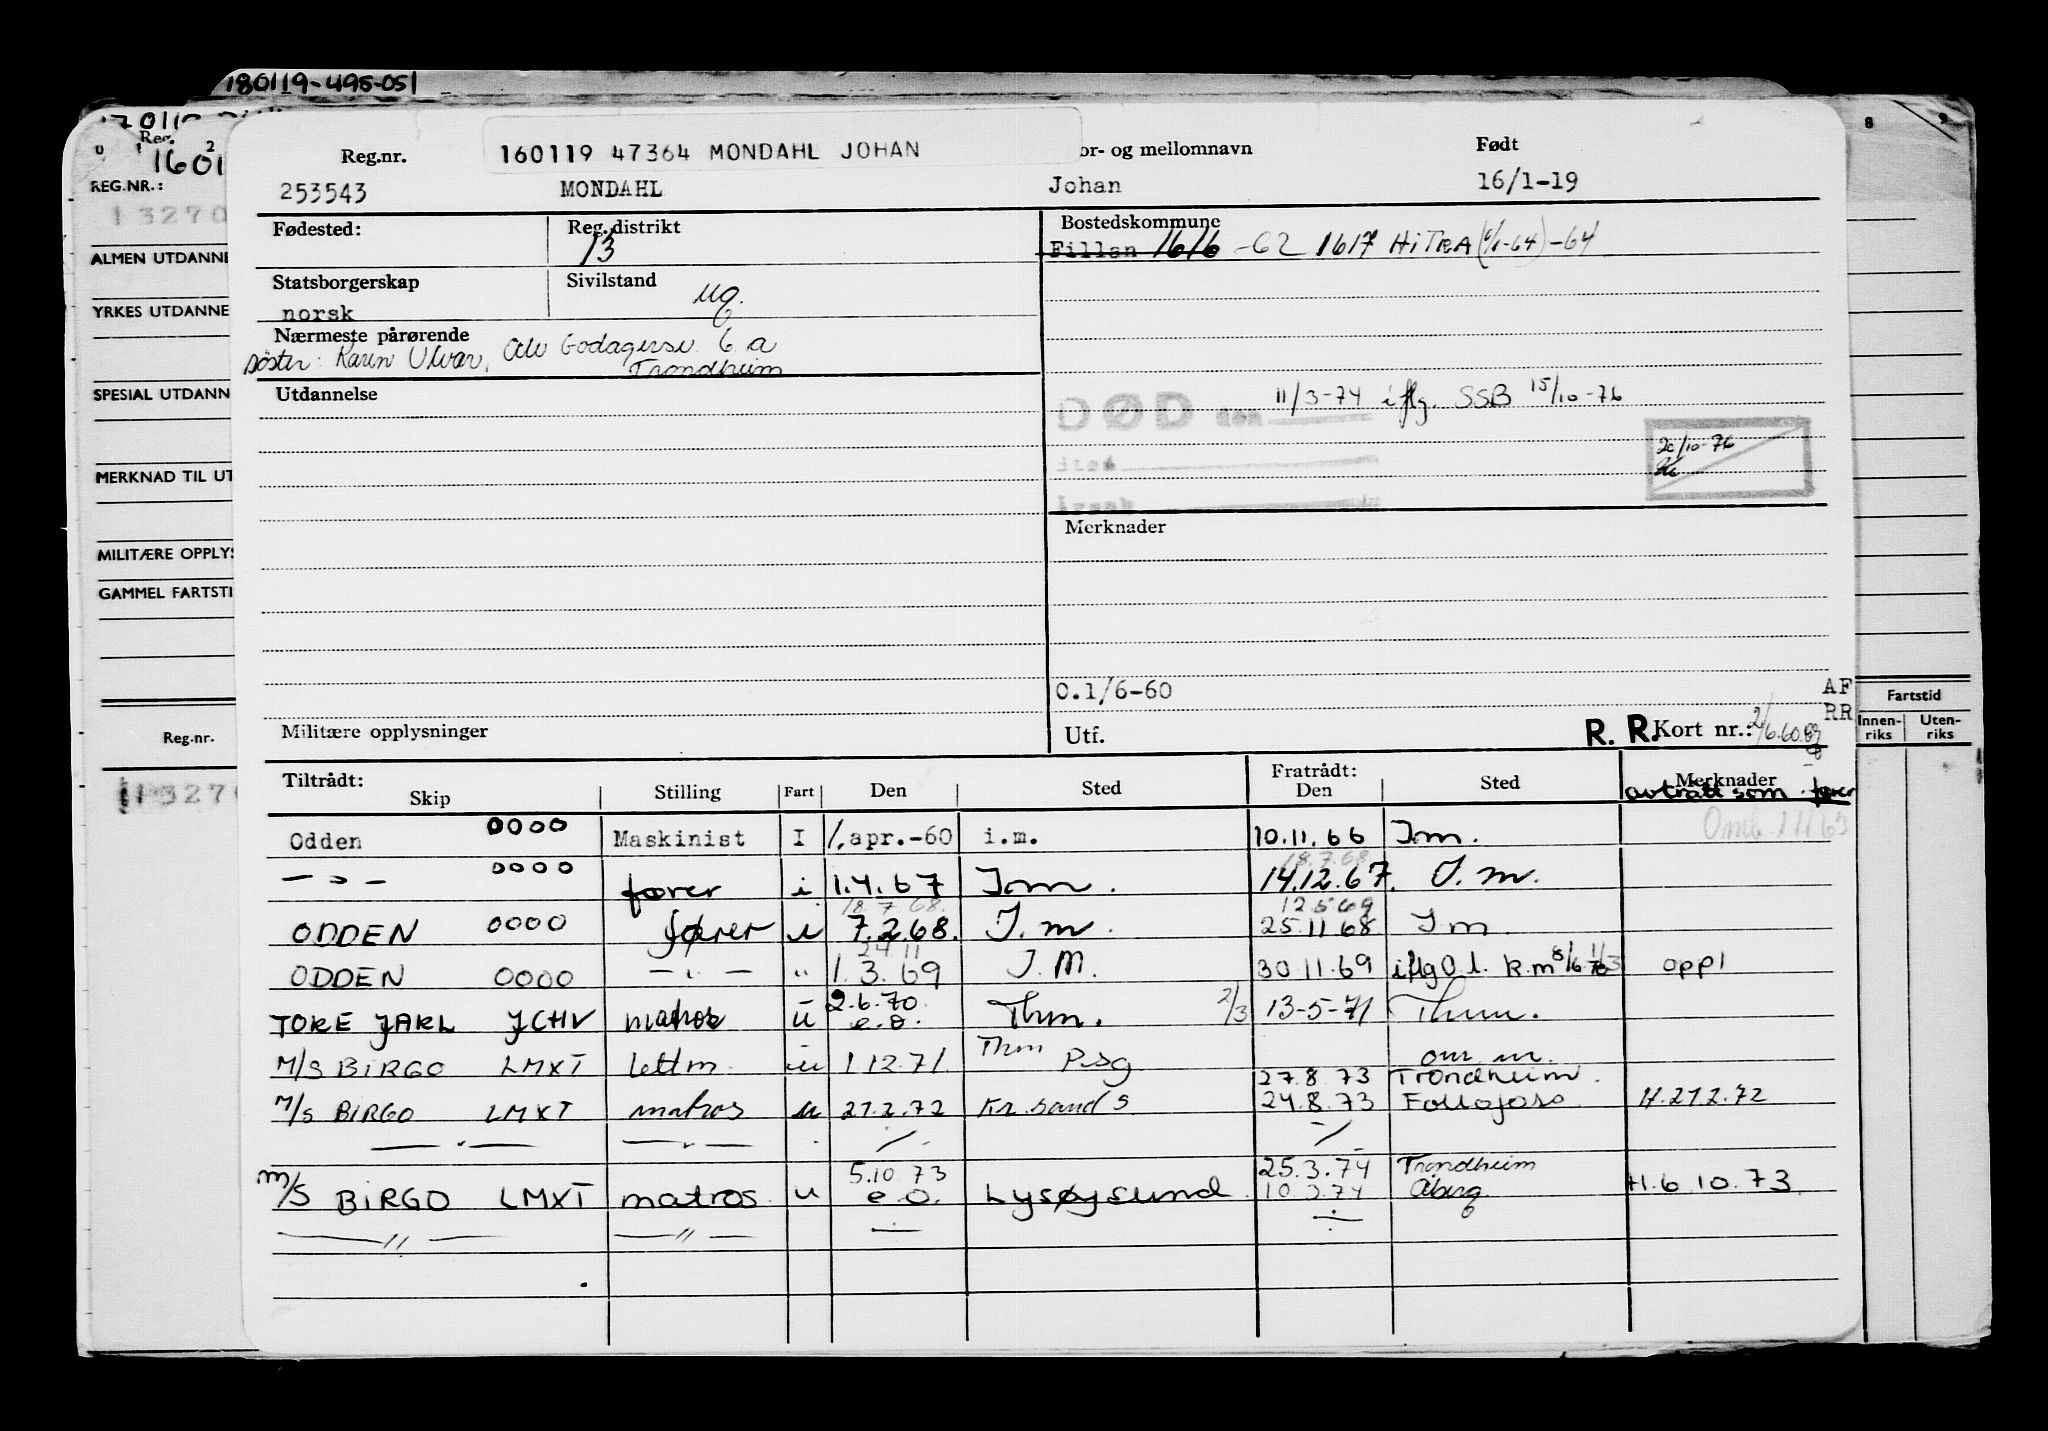 180119-495-051
Reg.
0 1 2
1601
8 9
REG.NR.:
13270
ALMEN UTDANNE
YRKES UTDANNE
SPESIAL UTDANN
MERKNAD TIL UT
MILITÆRE OPPLYS
GAMMEL FARTSTI
Reg.nr.
Fartstid
Innen-riks Uten-riks
Reg.nr. 160119 47364 MONDAHL JOHAN or- og mellomnavn Født
253543 MONDAHL Johan 16/1-19
Fødested: Reg.distrikt Bostedskommune
13 Fillan 1616 -62 1617 HiTRA (1/1-64) -64
Statsborgerskap Sivilstand
norsk ug.
Nærmeste pårørende
søster: Karin Ulvær, 6 a
Trondheim
Utdannelse
DØD den 11/3-74 iflg. SSB 15/10-76
20/10-76
Merknader
0.1/6-60 AF
RR
Militære opplysninger Utf. R. R. Kort nr.: 2/6.60
Tiltrådt: Fratrådt: Merknader
Skip Stilling Fart Den Sted Den Sted avtrått som fører
Odden 0000 Maskinist I 1. apr.-60 i.m. 10.11.66 I.m.
— " — 0000 fører i 1.4.67 I.m. 18.7.68 14.12.67. I.m.
ODDEN 0000 fører u 18.7.68. 7.2.68. I.m. 12.5 69 25 11 68 I m
ODDEN 0000 — " — " 24.11 1.3.69 I.M. 30.11.69 iflg O.l. k.m oppl
TORE JARL JCHV matros u 2.6.70. e.o. Thm. 2/3 13-5-71 Thm.
M/S BiRGO LMXT lettm. u 1 12.71. Thm Psg om. m.
27.8.73 Trondheim.
M/S BiRGO LMXT matros u 21.2.72 Kr.sand S 24.8.73 Follafoss H.21 2.72
5.10.73 25.3.74 Trondheim
M/S BiRGO LMXT matros u e.o. Lysøysund 10.3.74 H.6.10.73
— " — — " —